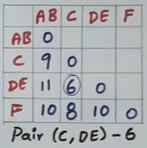 AB C DE F
AB 0
C 9 0
DE 11 6 0
F 10 8 10 0
Pair (C, DE) - 6